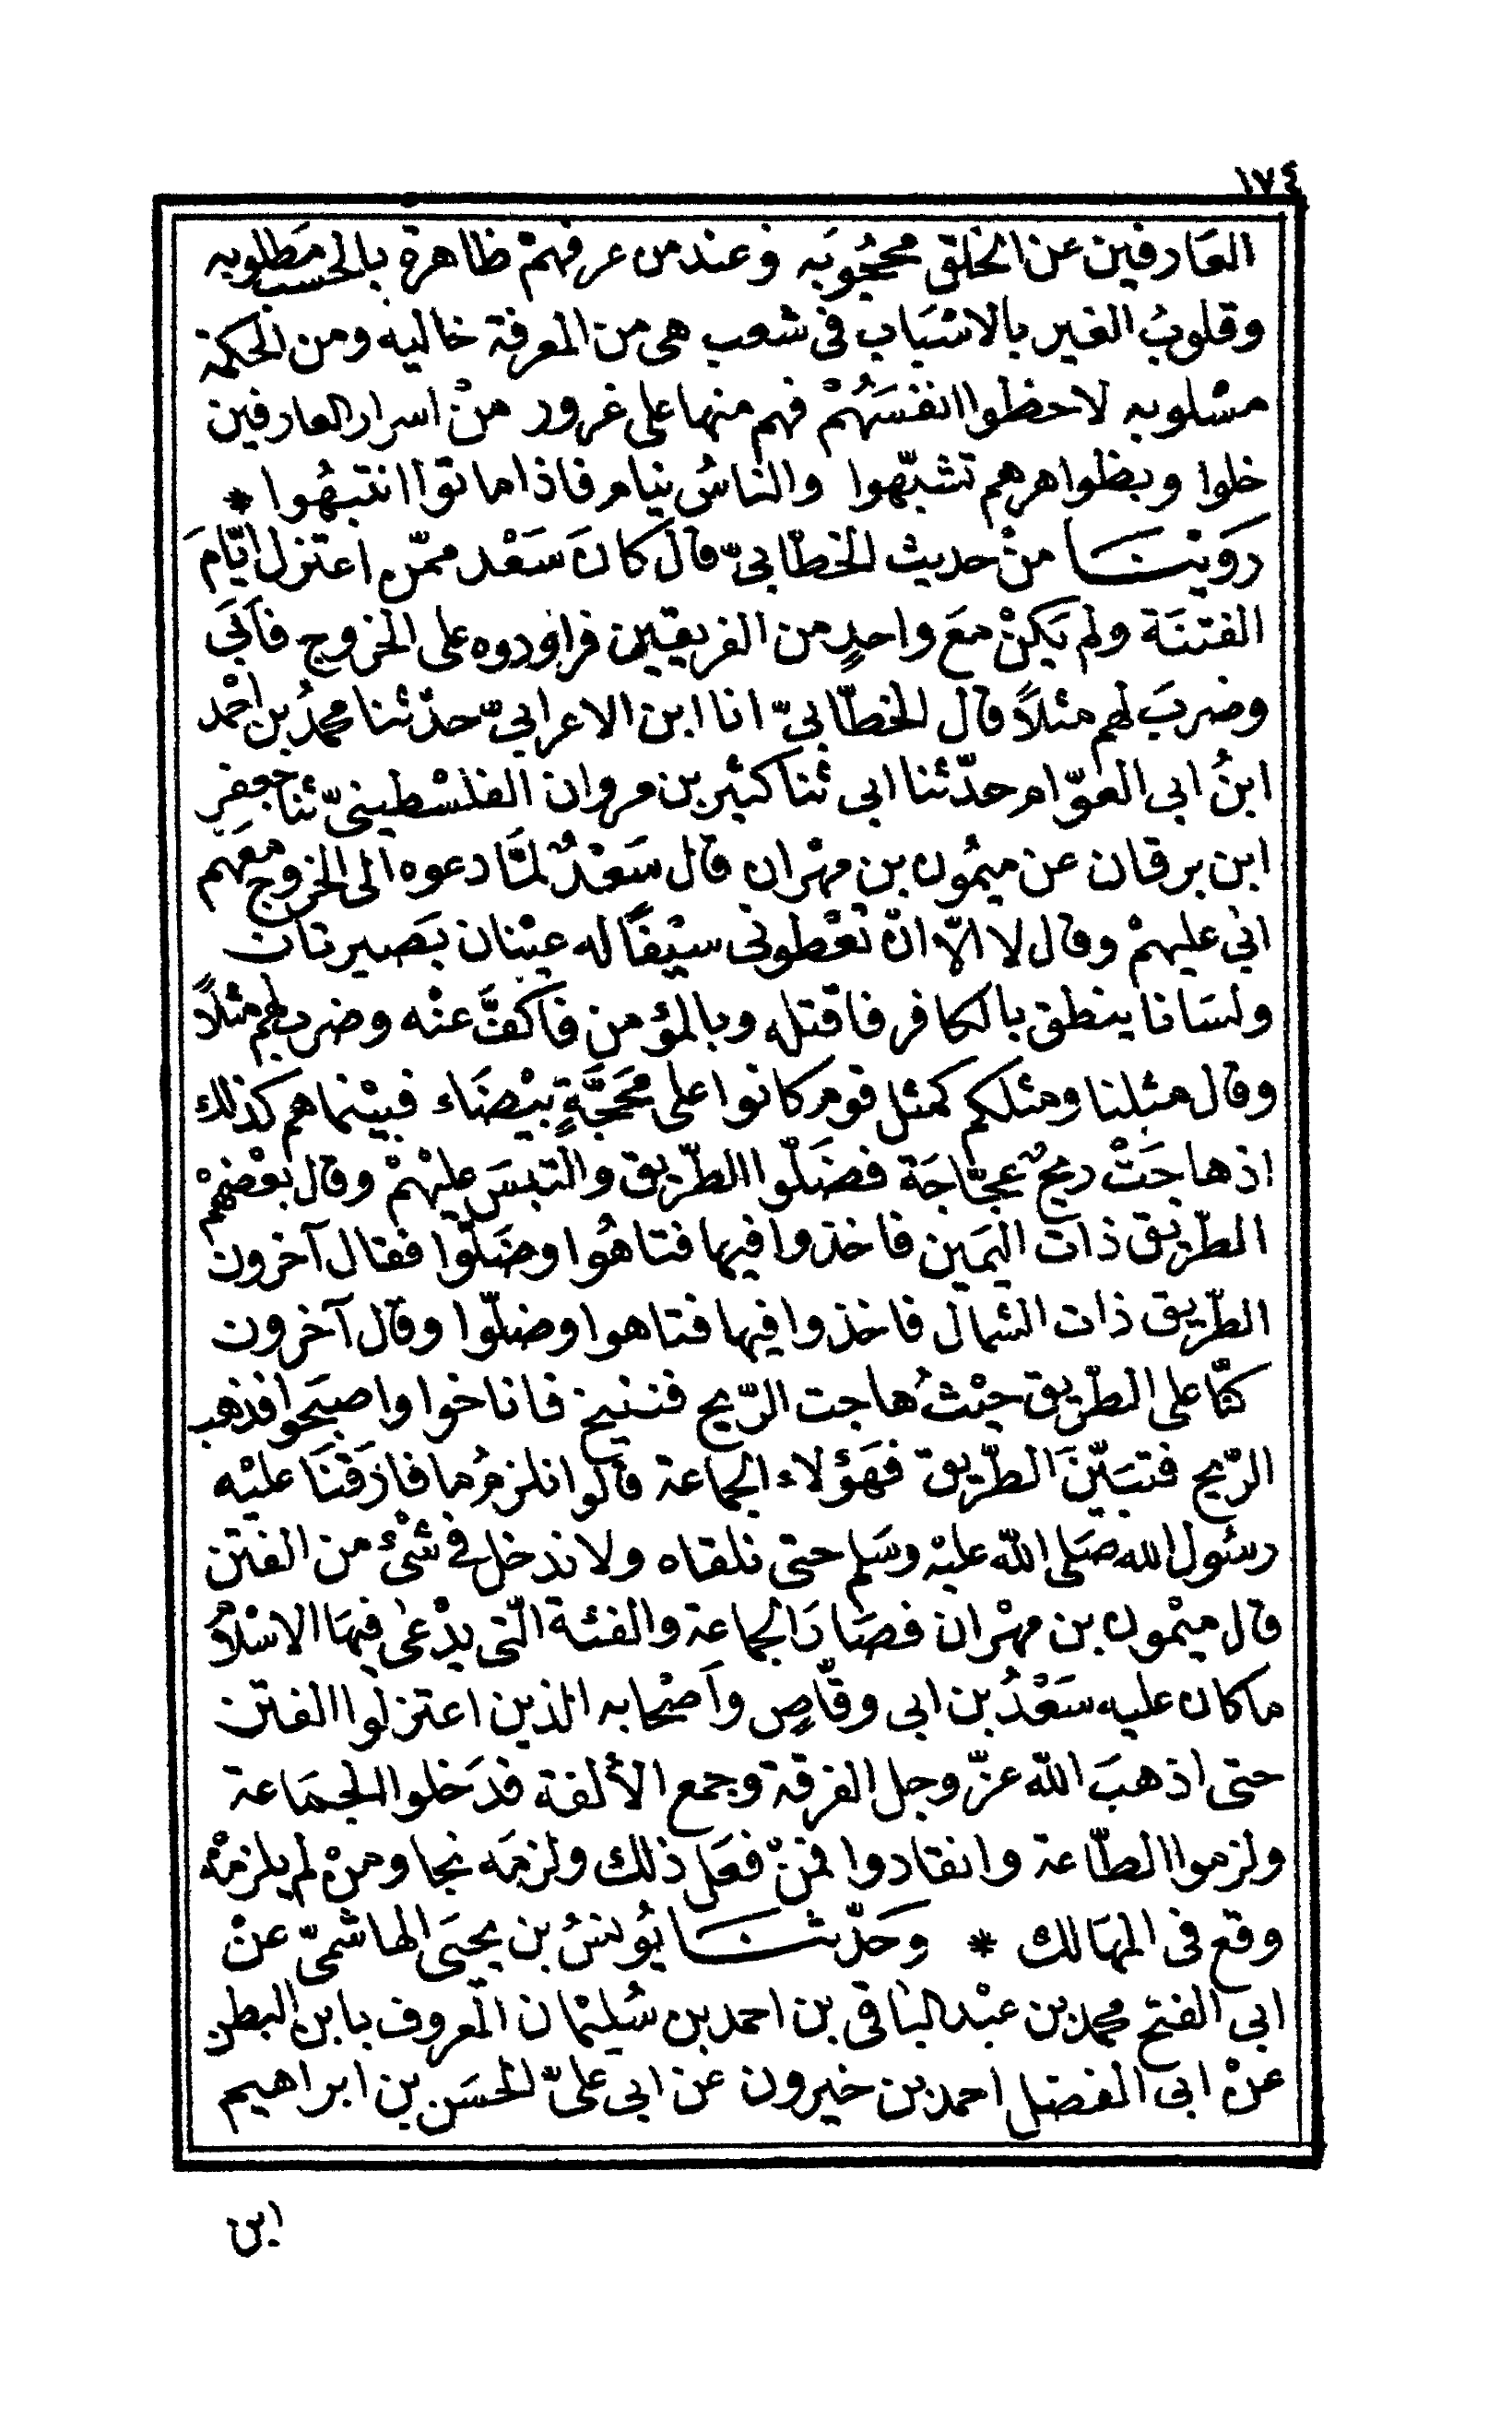 ١٧٤
العَارفين عن الخلق محجُوبَه وعند من عرفهمْ ظاهرة بالحسب مَطلوبه
وقلوبُ الغير بالاسْبَاب فى شعب هى من المعرفة خاليه ومن الحكمة
مسْلوبه لاحظوا انفسَهُمْ فهم منها على غرور منْ اسرار العارفين
خلوا وبظواهرهم تشبّهوا والناسُ نيام فاذا ماتوا انتبهُوا *
رَوَيْنَا منْ حديث الخطّابىّ قال كانَ سَعْد ممّن اعتزل ايّامَ
الفتنَة ولم يَكنْ معَ واحدٍ من الفريقين فراودوه على الخروج فأبَى
وضربَ لهم مثلاً قال الخطّابىّ انا ابن الاعرابىّ حدّثنا محمدُ بن احْمد
ابنُ ابى العوّام حدّثنا ابى ثنا كثير بن مروان الفلسْطينىّ ثنا جعفر
ابن برقان عن ميمُون بن مهْران قال سَعْدٌ لمّا دعوه الى الخروج معَهم
ابى عليهمْ وقال لا الّا انْ تعْطونى سيْفًا له عيْنان بَصيرتان
ولسَانا ينطق بالكافر فاقتله وبالمؤمن فاكفَّ عنْه وضرب لهم مثلاً
وقال مثلنا ومثلكم كمثل قوم كانوا على محَجَّةٍ بيْضَاء فبيْنماهم كذلك
اذ هاجَتْ ريحٌ عجّاجَة فضَلّوا الطّريق والتبسَ عليْهمْ وقال بعْضهمْ
الطّريق ذات اليَمين فاخذوا فيها فتاهُوا وضَلّوا فقال آخرون
الطّريق ذات الشمال فاخذوا فيها فتاهوا وضلّوا وقال آخرون
كنّا على الطّريق حيْثُ هاجت الرّيح فننيخ فاناخوا واصبَحوا فذهب
الرّيح فتبَيّنَ الطّريق فهَؤلاء الجماعة قالوا نلزمُ ما فارَقنَا عليْه
رسُول الله صَلى الله عليْه وسَلم حتى نلقاه ولا ندْخل فى شئْ من الفتن
قال ميْمون بن مهْران فصَارَ الجماعة والفئة الّتى يدْعى فيهَا الاسْلامُ
ما كان عليه سَعْدُ بن ابى وقّاصٍ وأصْحابه الذين اعتزلوا الفتن
حتى اذهبَ الله عزّ وجل الفرقة وجمع الألفة فدَخلوا الجمَاعة
ولزموا الطّاعة وانقادوا فمنْ فعَل ذلك ولزمَه نجا ومنْ لم يلزمْهُ
وقع فى المهَالك * وَحَدّثنَا يُونسُ بن يحيَى الهاشمىّ عنْ
ابى الفتح محمد بن عبْد البَاقى بن احمد بن سُليْمان المعروف بابن البطى
عنْ ابى الفضل احمد بن خيرون عن ابى علىّ الحسَن بن ابراهيم
ابن